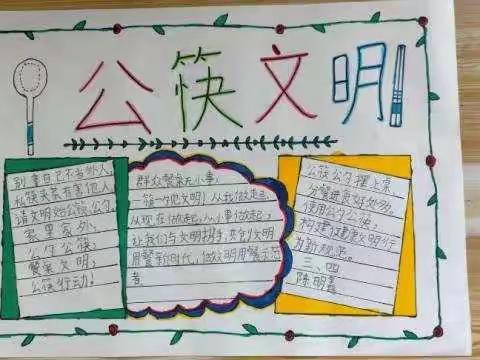 公筷文明
别拿自己不当外人,
私筷夹菜有害他人,
请文明如公筷公勺
家里家外,
公勺公筷;
餐桌文明,
公筷行动!
群众餐桌无小事,
一筷一勺见文明!从我做起,
从现在做起,从小事做起,
让我们与文明携手,共创文明
用餐新时代,做文明用餐示范
者
公筷公勺摆上桌,
分餐进食好处多。
使用公勺公筷,
构建健康文明行
为新规范。
三、四
陈明